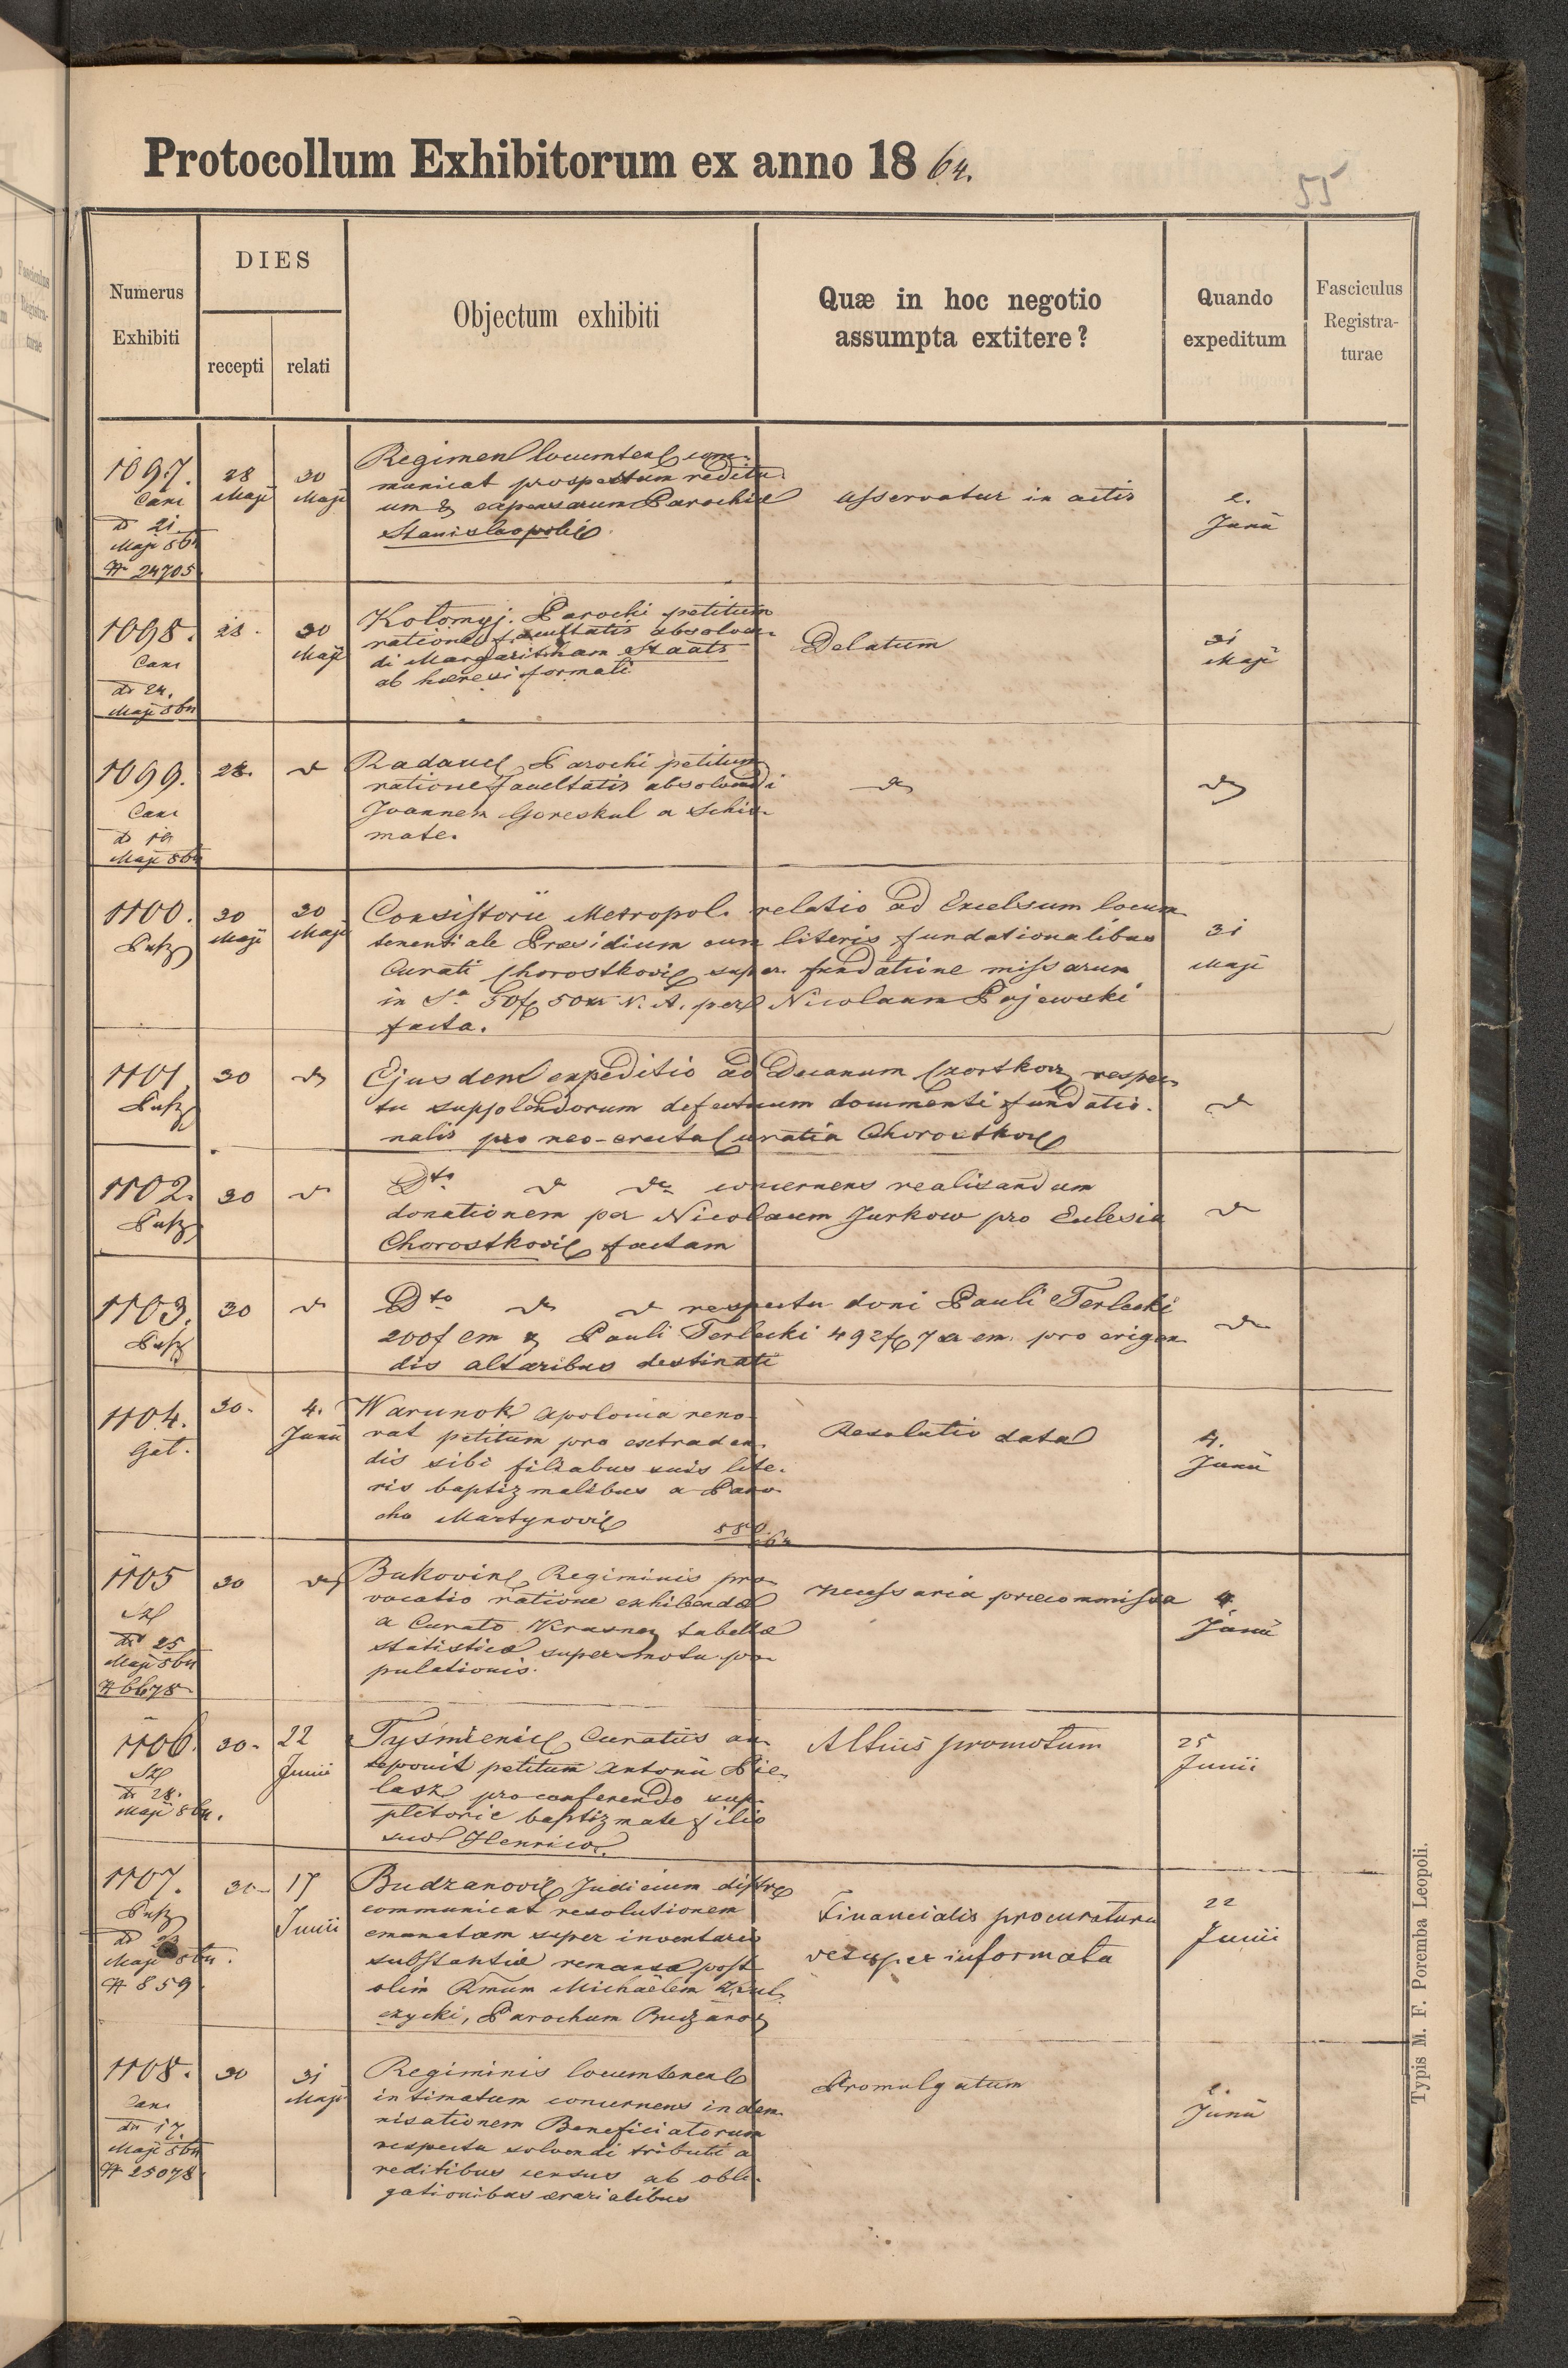 Protocollum Exhibitorum ex anno 1864.
55
Numerus Exhibiti
DIES
recepti
relati
Objectum exhibiti
Quæ in hoc negotio
assumpta extitere?
Quando
expeditum
Fasciculus
Registra-
turae
1097.
28
Maji
30
Maji
Regimen locumten com-
municat prospectum reditu
um & expensarum Parochiæ
Stanislaopoli
Asservatur in actis
2.
Junii
Cani
21
Maji
# 24705
1098.
28.
30
Maji
Kolomyj. Parochi petitum
ratione facultatis absolven-
di Margaritham Staats
ab hæresi formali
Delatum
31
Maji
Cani
24.
Maji
1099.
28.
Radauc Parochi petitum
ratione facultatis absolvendi
Joannem Goreskul a Schis-
mate.
Cani
Maji
1100.
30
Maji
30
Maji
Consistorii Metropol. relatio ad Excelsum locum
tenentiale Præsidium cum literis fundationalibus
Curati Chorostkovi super fundatione missarum
in Sa 50f 50xr N. A. per Nicolaum Pajewski
facta.
31
Maji
1101
30
Ejusdem expeditio ad Decanum Czortkov respec-
tu supplendorum defectuum documenti fundatio-
nalis pro neo-erecta Curatia Chorostkov
1102.
30
Dto concernens realisandam
donationem per Nicolaum Jurkow pro Eclesia
Chorostkovi factam
1103.
30
Dto respectu doni Pauli Terlecki
200f em & Pauli Terlecki 492f 7xr em. pro erigen-
dis altaribus destinati
1104.
Gat.
30.
4.
Junii
Warunok Apolonia reno-
vat petitum pro extraden-
dis sibi filiabus suis lite-
ris baptizmalibus a Paro-
cho Martynovi
Resolutio data
4.
Junii
1105
30
Bukovin Regiminis pro-
vocatio ratione exhibendæ
a Curato Krasne tabellæ
statisticæ super motu po-
pulationis.
necessaria præcommissa
4.
Junii
25
Maji
# 6678
1106.
30.
22
Junii
Tyśmienic Curatus an-
teponit petitum Antonii Bie-
lasz pro conferendo sup-
pletorie baptizmate filio
suo Henrico.
Altius promotum
25
Junii
28.
Maji
1107.
30
17
Junii
Budzanovi Judicium distr
communicat resolutionem
emanatam super inventario
substantiæ remansæ post
olim Rmum Michaëlem
czycki, Parochum Budzanov
Financialis procuratura
desuper informata
22
Junii
Maji
# 859
1108.
30
31
Maji
Regiminis locumtenenl
intimatum concernens indem-
nisationem Beneficiatorum
respectu solvendi tributi a
reditibus census ab obli-
gationibus ærarialibus
Promulgatum
2.
Junii
Cani
17.
Maji
# 25078
Typis M. F. Poremba Leopoli.